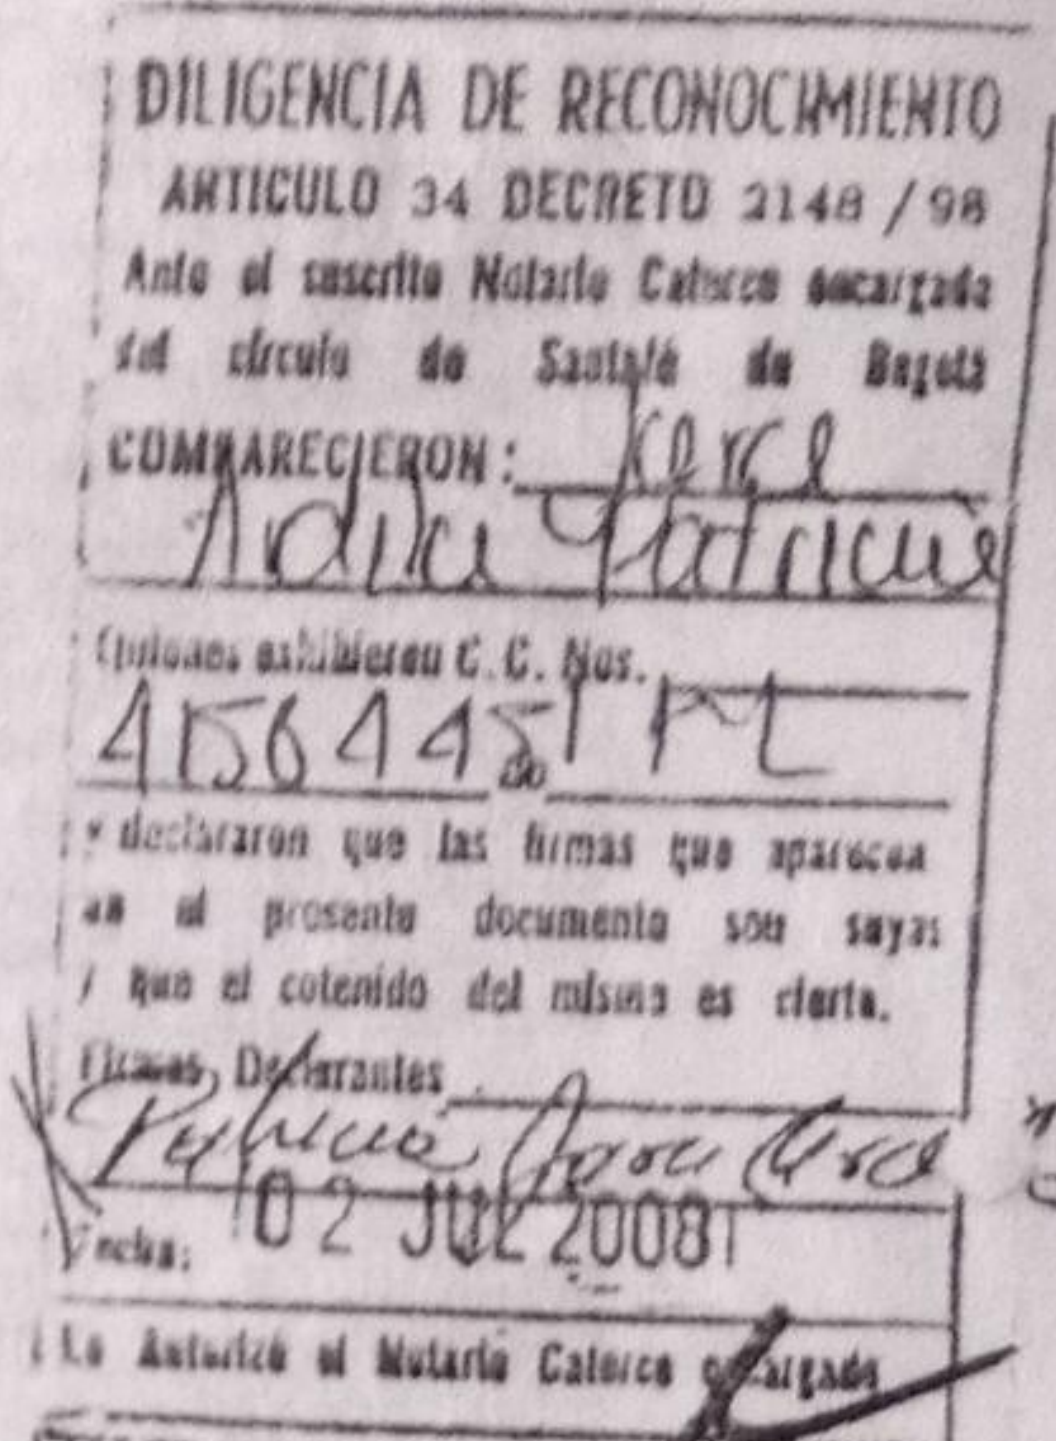 DILIGENCIA DE RECONOCIMIENTO
ARTICULO 34 DECRETO 2148 / 98
Ante el suscrito Notario Catorce encargado
del círculo de Santafé de Bogotá
COMPARECIERON:
Patricia
Quienes exhibieron C. C. Nos.
41564451
de
y declararon que las firmas que aparecen
en el presente documento son suyas
y que el cotenido del mismo es cierto.
Firmas Declarantes
Patricia
02 JUL 2008
Fecha:
Lo Autorizó el Notario Catorce encargado